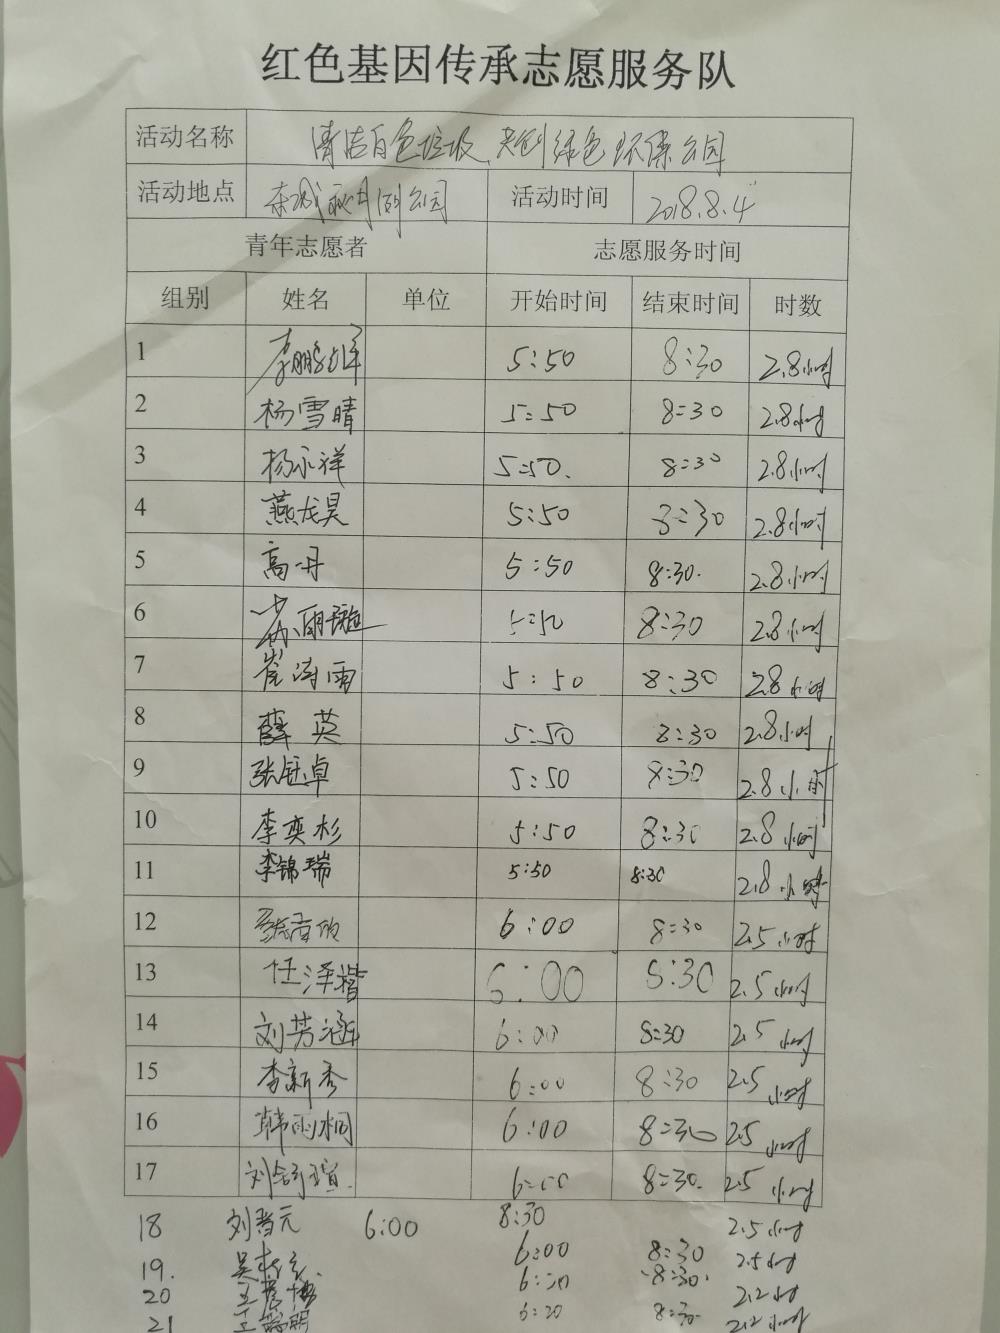 红色基因传承志愿服务队
活动名称 清洁白色垃圾、共创绿色环保公园
活动地点 公园 活动时间 2018.8.4
青年志愿者 志愿服务时间
组别 姓名 单位 开始时间 结束时间 时数
1 李鹏 5:50 8:30 2.8小时
2 杨雪晴 5:50 8:30 2.8小时
3 杨永祥 5:50. 8:30 2.8小时
4 燕龙昊 5:50 8:30 2.8小时
5 高丹 5:50 8:30. 2.8小时
6 5:50 8:30 2.8小时
7 崔涛雨 5:50 8:30 2.8小时
8 薛英 5:50 8:30 2.8小时
9 张钰卓 5:50 8:30 2.8小时
10 李奕杉 5:50 8:30 2.8小时
11 李锦瑞 5:50 8:30 2.8小时
12 6:00 8:30 2.5小时
13 任泽楷 6:00 8:30 2.5小时
14 刘芳涵 6:00 8:30 2.5小时
15 李新秀 6:00 8:30 2.5小时
16 韩雨桐 6:00 8:30 2.5小时
17 刘 瑄. 6:00 8:30. 2.5小时
18 刘 元 6:00 8:30 2.5小时
19. 吴 6:00 8:30 2.5小时
20 王 6:20 8:30. 2.2小时
21 王 明 6:20 8:30 2.2小时